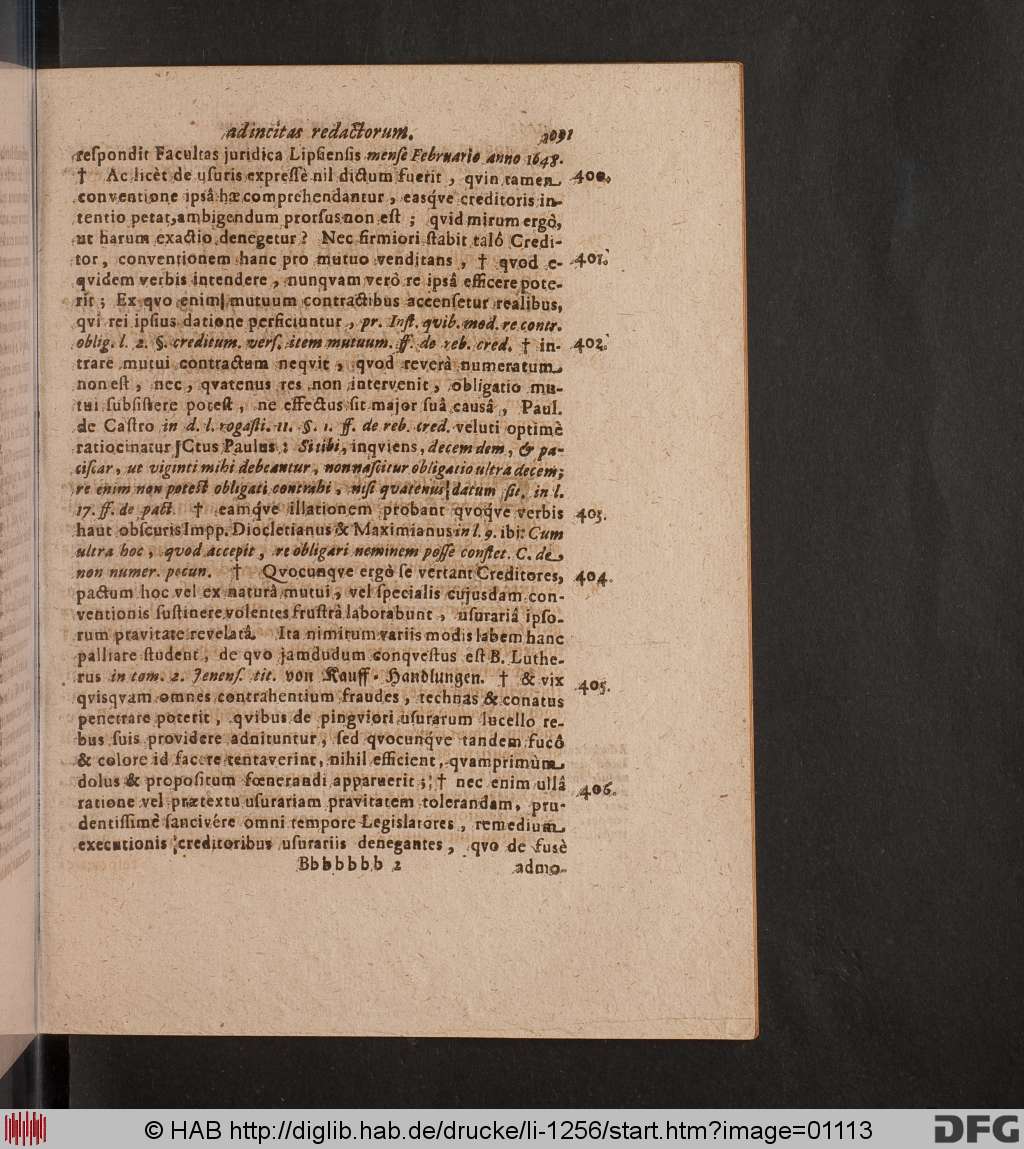 adincitas redactorum. 1091
respondit Facultas juridica Lipsiensis mense Februario anno 1648.
† Ac licèt de usuris expressè nil dictum fuerit, qvin tamen 400.
conventione ipsâ hæ comprehendantur, easq́ve creditoris in-
tentio petat, ambigendum prorsus non est; qvid mirum ergò,
ut harum exactio denegetur? Nec firmiori stabit talô Credi-
tor, conventionem hanc pro mutuo venditans, † qvod e- 401.
qvidem verbis intendere, nunqvam verò re ipsâ efficere pote-
rit; Ex qvo enim mutuum contractibus accensetur realibus,
qvi rei ipsius datione perficiuntur, pr. Inst. qvib. mod. re contr.
oblig. l. 2. §. creditum. vers. item mutuum. ff. de reb. cred. † in- 402.
trare mutui contractum neqvit, qvod reverà numeratum
non est, nec, qvatenus res non intervenit, obligatio mu-
tui subsistere potest, ne effectus sit major suâ causâ, Paul.
de Castro in d. l. rogasti. 11. §. 1. ff. de reb. cred. veluti optimè
ratiocinatur JCtus Paulus: Si tibi, inqviens, decem dem, & pa-
ciscar, ut viginti mihi debeantur, non nascitur obligatio ultra decem;
re enim non potest obligati contrahi, nisi qvatenus datum sit. in l.
17. ff. de pact. † eamq́ve illationem probant qvoq́ve verbis 403.
haut obscuris Impp. Diocletianus & Maximianus in l. 9. ibi: Cum
ultra hoc, qvod accepit, re obligari neminem posse constet. C. de
non numer. pecun. † Qvocunqve ergò se vertant Creditores, 404.
pactum hoc vel ex naturâ mutui, vel specialis cujusdam con-
ventionis sustinere volentes frustrà laborabunt, usurariâ ipso-
rum pravitate revelatâ. Ita nimirum variis modis labem hanc
palliare student, de qvo jamdudum conqvestus est B. Luthe-
rus in tom. 2. Jenens. tit. von Kauff-Handlungen. † & vix 405.
qvisqvam omnes contrahentium fraudes, technas & conatus
penetrare poterit, qvibus de pingviori usurarum lucello re-
bus suis providere adnituntur, sed qvocunq́ve tandem fucô
& colore id facere tentaverint, nihil efficient, qvamprimùm
dolus & propositum fœnerandi apparuerit; † nec enim ullâ 406.
ratione vel prætextu usurariam pravitatem tolerandam, pru-
dentissimè sancivére omni tempore Legislatores, remedium
executionis creditoribus usurariis denegantes, qvo de fusè
Bbbbbbb 2 admo-
© HAB http://diglib.hab.de/drucke/li-1256/start.htm?image=01113
DFG